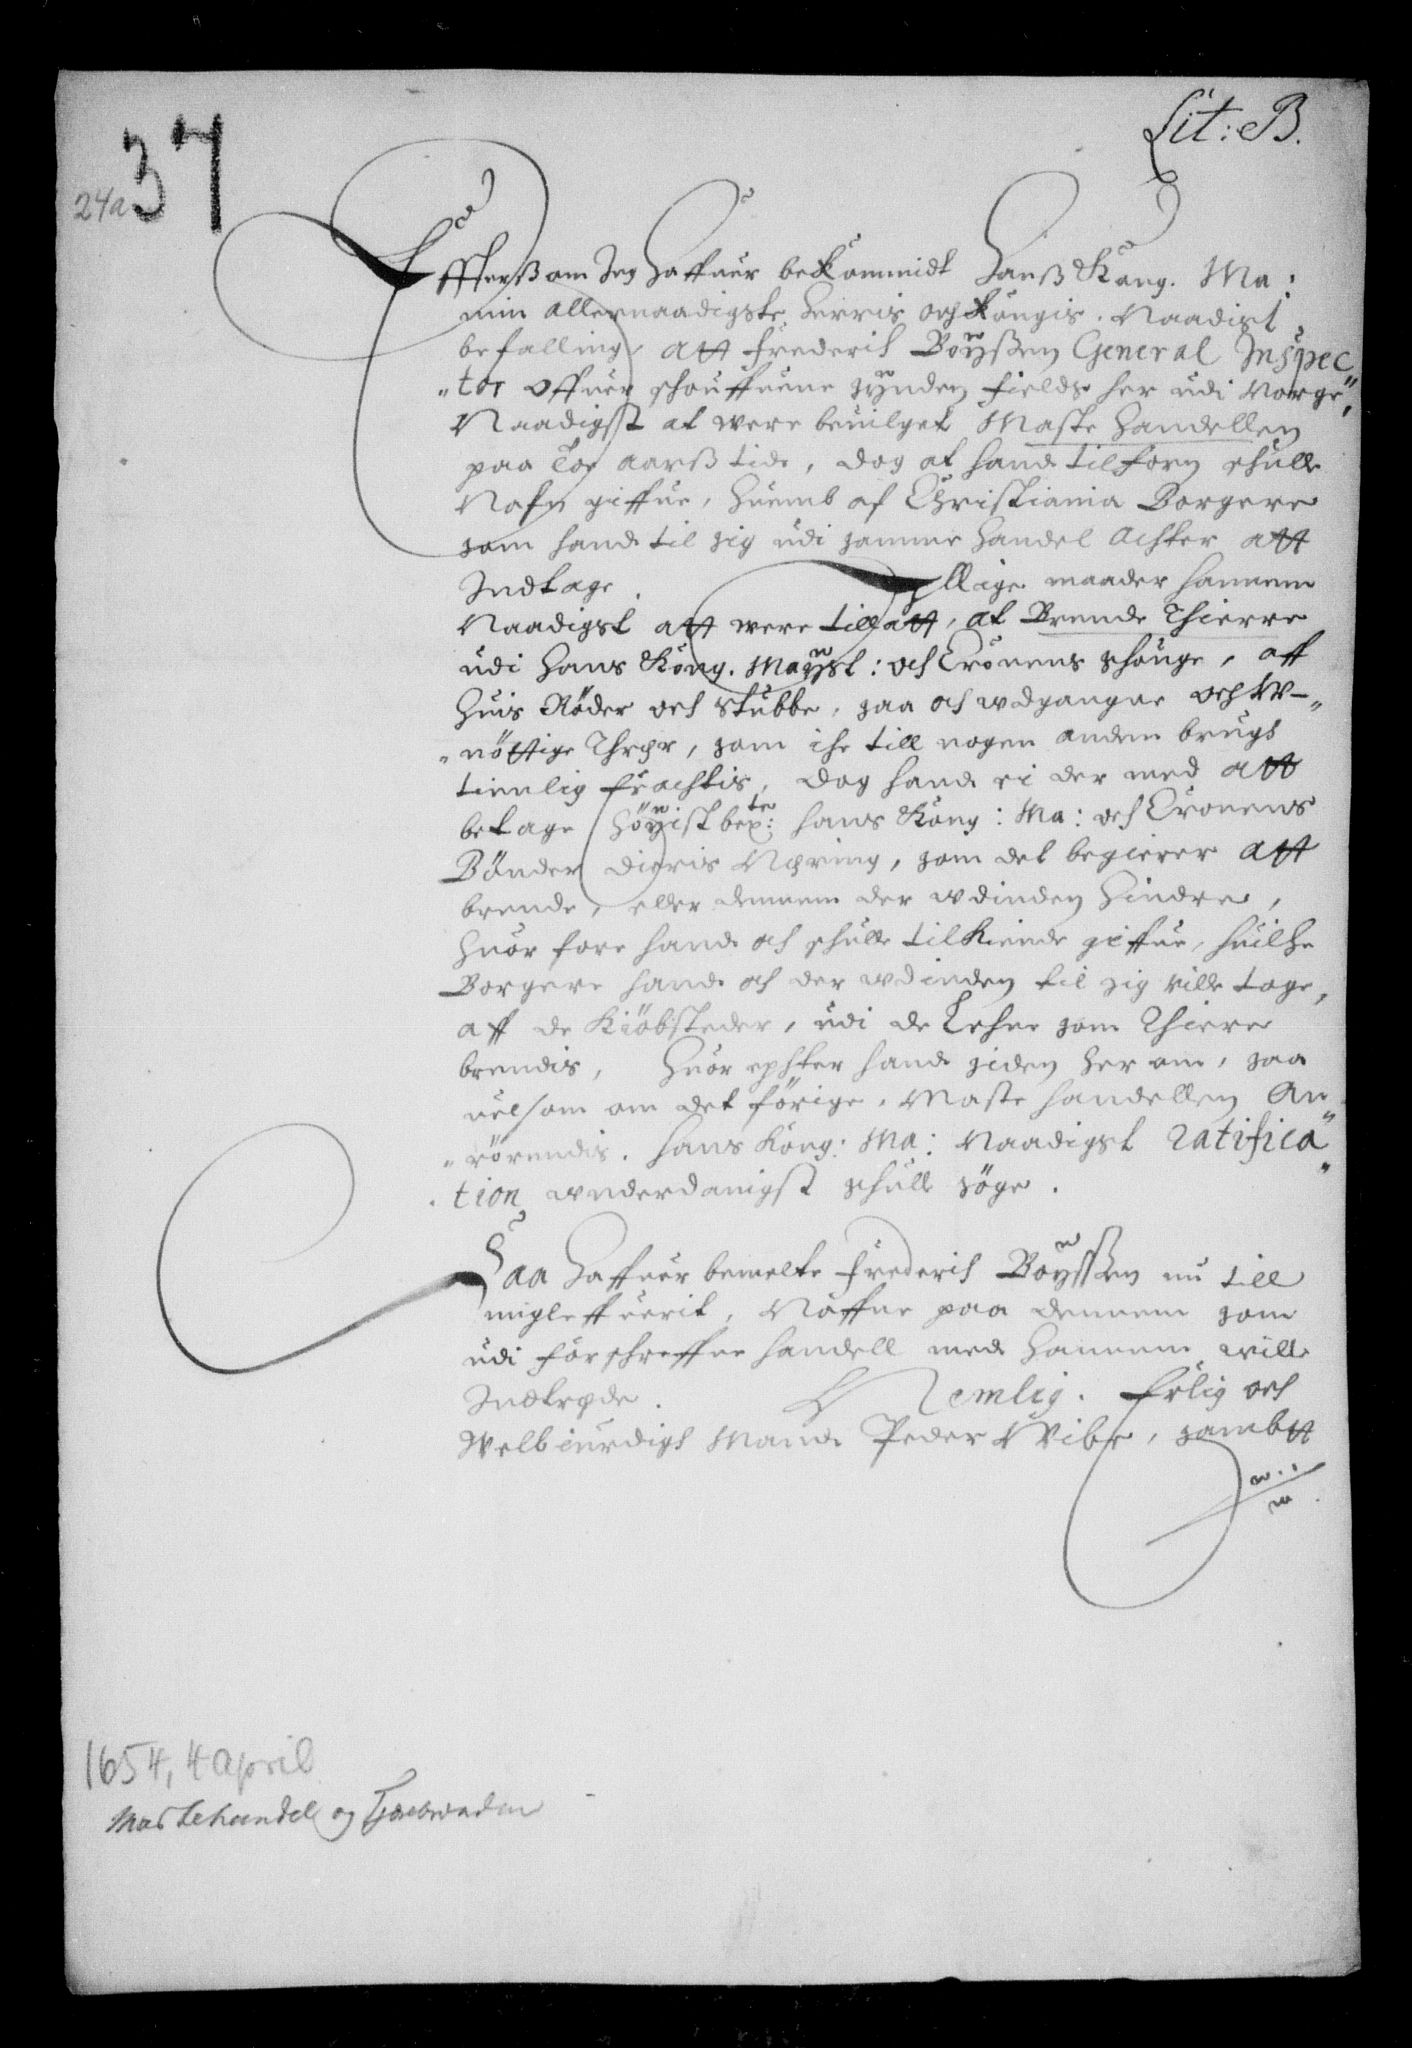 Lit: B.
37
24a
Effterßom Jeg Haffuer bekommidt Hanß Kong. Ma:
min allernaadigste Herris och Kongis. Naadist
befalling, att Frederich Boyßen General Inspec
„tor offuer schouffuene synden fields her udi Norge,
Naadigst at were beuilget Maste Handellen
paa Toe aarß tide, dog at hand tilforn schulle
Nafn giffue, huemb af Christiania Borgere
som hand til sig udi samme Handel achter att
Indtage. Jllige maader hannem
Naadigst att were tillatt, at Brende Thierre
udi Hans Kong. Mayst: och Cronens schouge, aff
huis Röder och stubbe, saa och wdgangne och W-„
„nöttige Thrær, som iche till nogen anden brugs
tienlig Erachtis, dog hand ei der med att
betage Höyistbete: hans Kong: Ma: och Cronens
Bönder dieris Næring, som det begierer att
brende, eller dennem der wdinden Hindre,
Huor fore hand och schulle tilkiende giffue, huilche
Borgere hand och der wdinden til sig ville tage,
aff de Kiöbsteder, udi de Lehne som Thiere
brendis, Huor epther hand siden her om, saa
uelsom om det förige, Maste handellen An
„rörendis. hans Kong: Ma: Naadigst ratifica„
„tion wnderdanigst schulle söge.
Saa Haffuer bemelte Frederich Boyssen nu till
migleffuerit, Naffne paa dennem som
udi forschreffne handell med Hannem wille
Indtræde. Nemlig. Erlig och
Welbiurdigh Mand Peder Wibe, sambtt
1654, 4 April
Mastehandel og Tjærebrænden